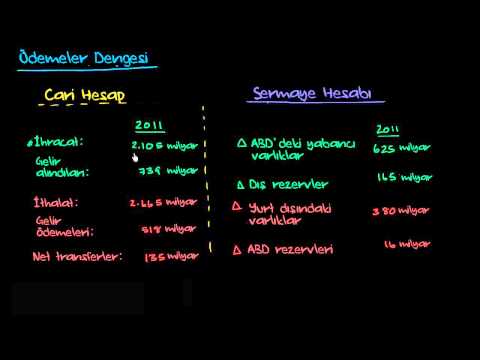 Ödemeler Dengesi
Cari Hesap
2011
İhracat: 2.105 milyar
Gelir
alındıları: 739 milyar
İthalat: 2.665 milyar
Gelir
ödemeleri: 518 milyar
Net transferler: 135 milyar
Sermaye Hesabı
2011
Δ ABD'deki yabancı 625 milyar
varlıklar
Δ Dış rezervler 165 milyar
Δ Yurt dışındaki 380 milyar
varlıklar
Δ ABD rezervleri 16 milyar